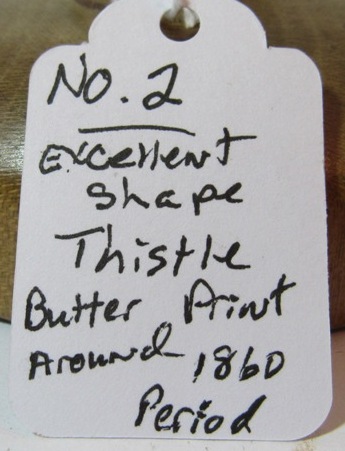 No. 2
Excellent
Shape
Thistle
Butter Print
Around 1860
Period